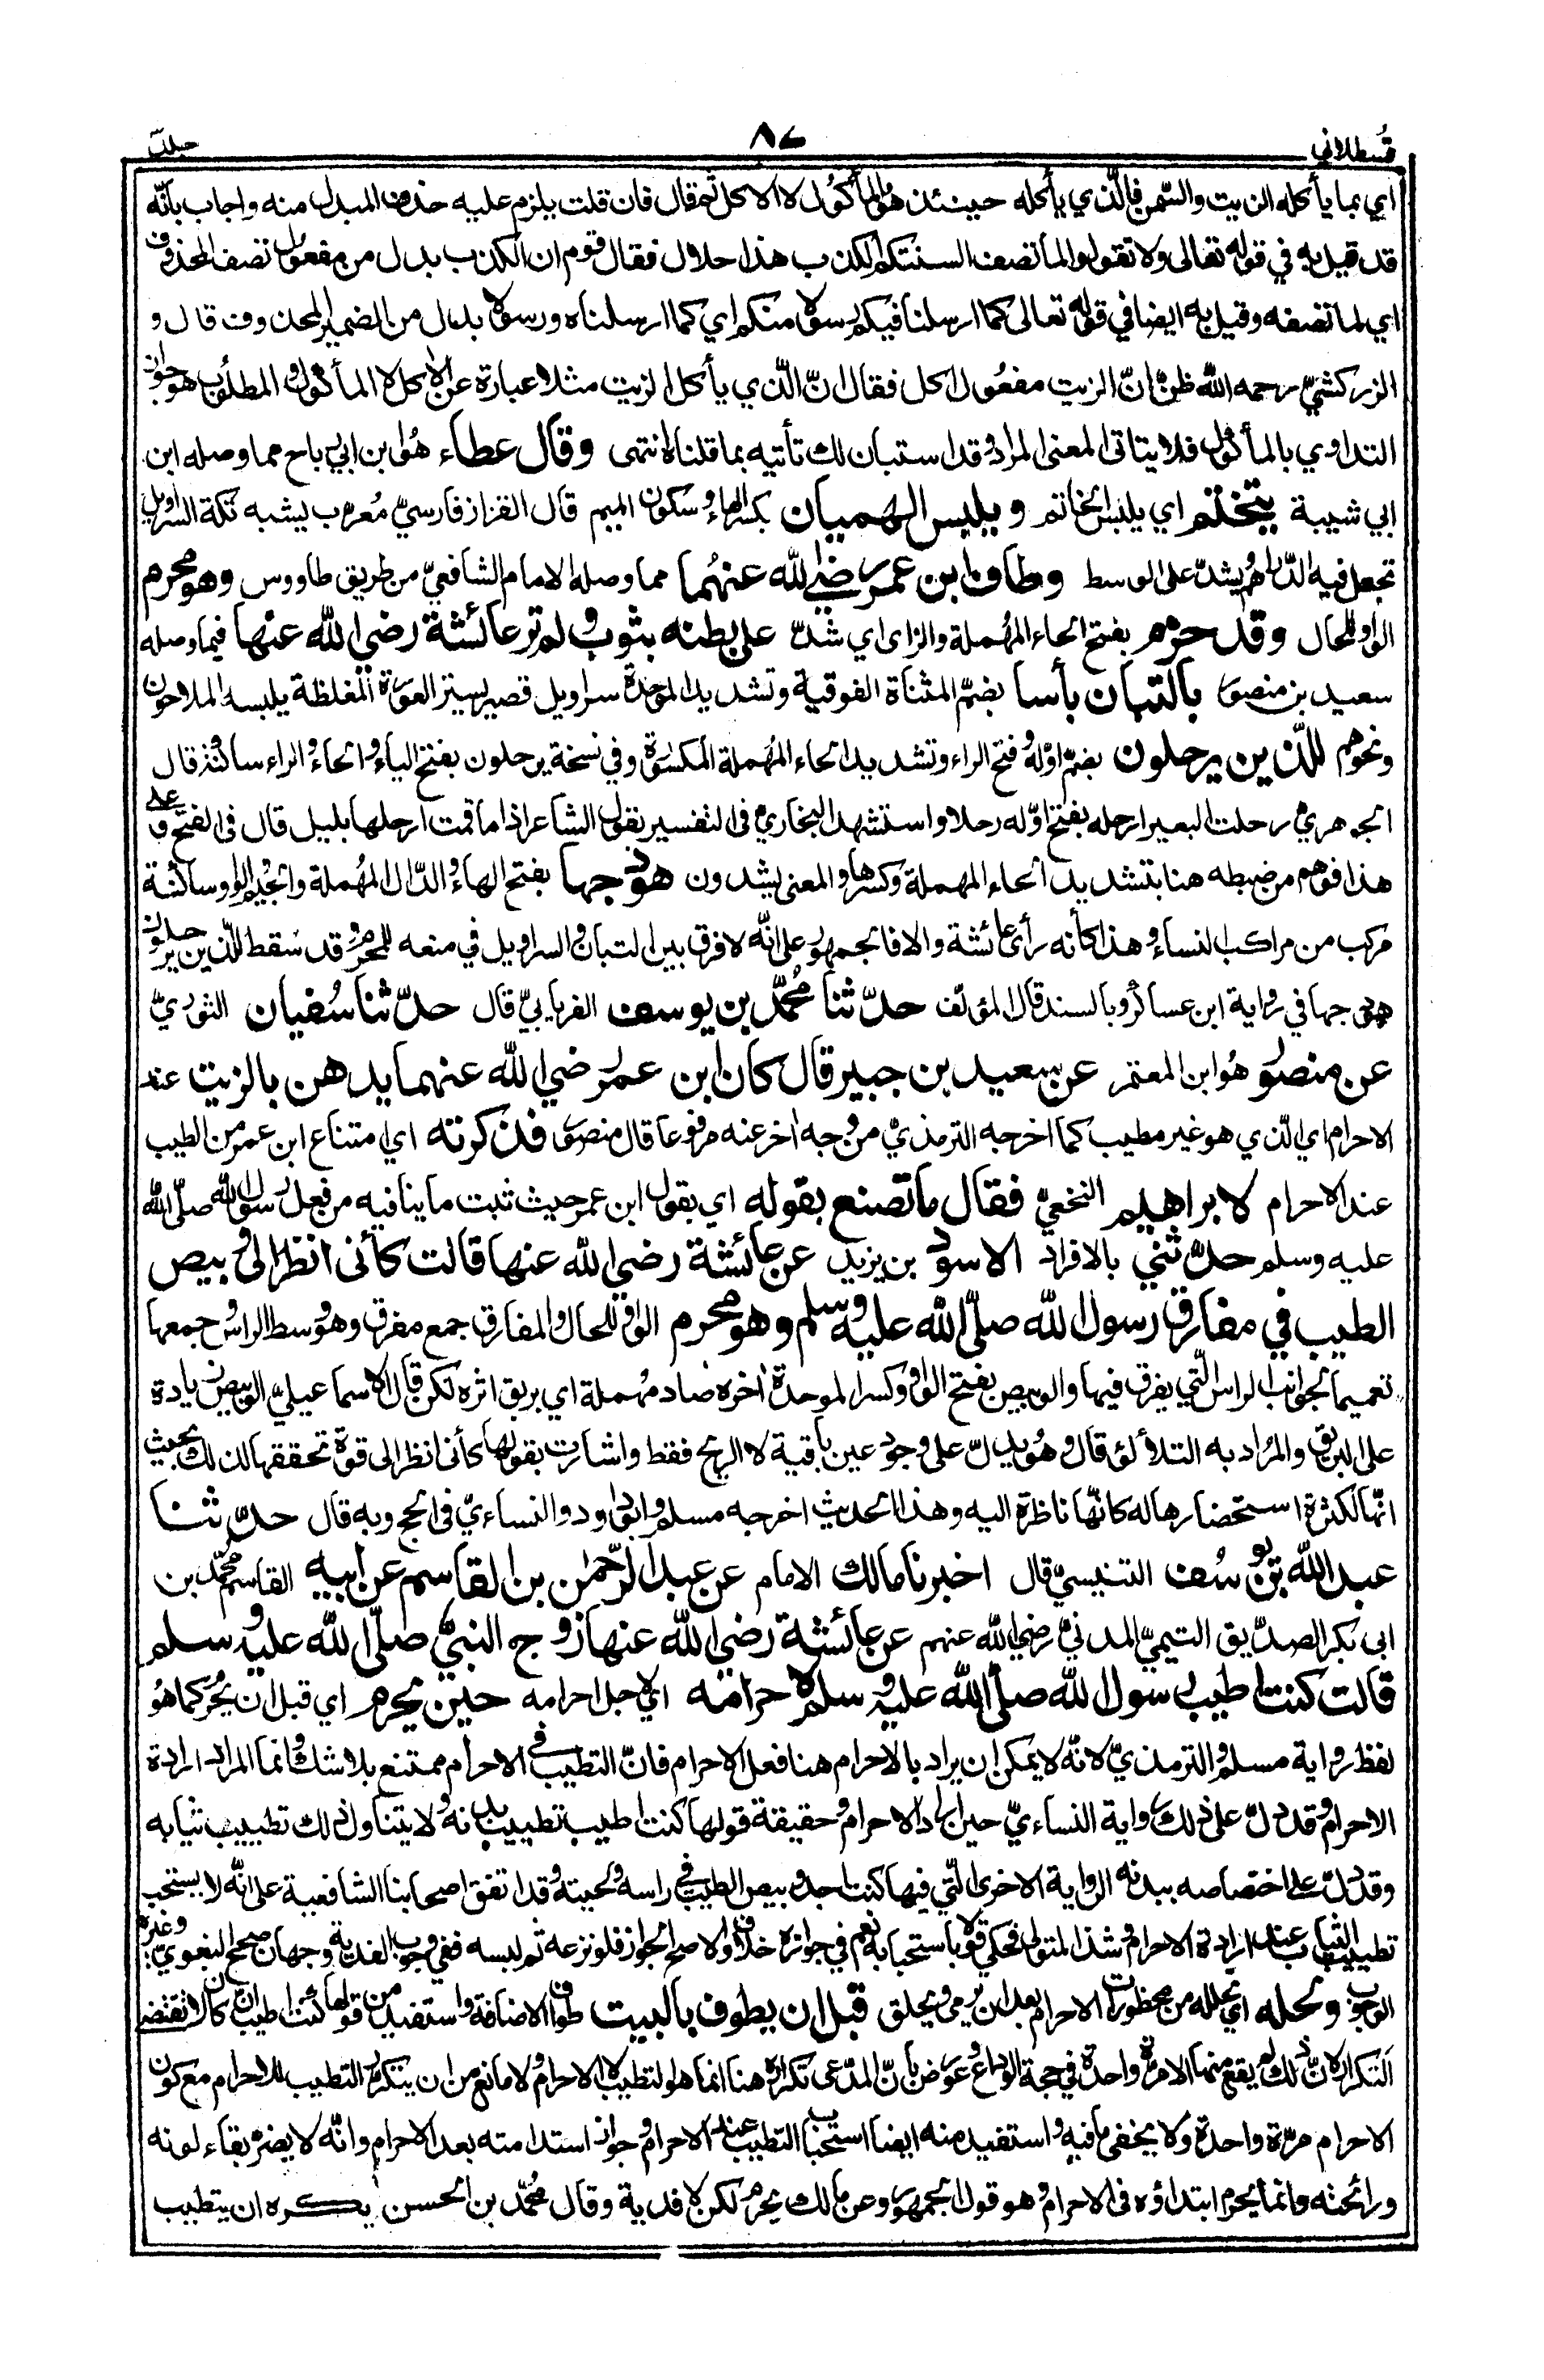 قسطلاني
٨٧
جلد
اي بما يأكله الزيت والسّمن فالّذي يأكله حينئذ هو المأكول لا الاكل ثم قال فان قلت يلزم عليه حذف المبدل منه واجاب بانّه
قد قيل به في قوله تعالى ولا تقولوا لما تصف السنتكم الكذب هذا حلال فقال قوم ان الكذب بدل من مفعول تصف المحذوف
اي لما تصفه وقيل به ايضا في قوله تعالى كما ارسلنا فيكم رسولا منكم اي كما ارسلناه ورسولا بدل من الضمير المحذوف قال و
الزركشيّ رحمه الله ظنّ انّ الزيت مفعول اكل فقال انّ الّذي يأكل الزيت مثلا عبارة عن الاكل لا المأكول والمطلوب هو جواز
التداوي بالمأكول فلا يتاتى المعنى المراد وقد استبان لك تأتيه بما قلناه انتهى وقال عطاء هو ابن ابي رباح مما وصله ابن
ابي شيبة يتختم اي يلبس الخاتم ويلبس الهميان بكسر الهاء وسكون الميم قال القزاز فارسيّ مُعرب يشبه تكة السراويل
تجعل فيه الدّراهم يشدّ على الوسط وطاف ابن عمر رضي الله عنهما مما وصله الامام الشافعيّ من طريق طاووس وهو محرم
الواو للحال وقد حزم بفتح الحاء المهملة والزاى اي شدّ على بطنه بثوب ولم تر عائشة رضي الله عنها فيما وصله
سعيد بن منصور بالتبان بأسا بضمّ المثناة الفوقية وتشديد الموحدة سراويل قصير يستر العورة المغلظة يلبسه الملاحون
ونحوهم للّذين يرحلون بضمّ اوّله وفتح الراء وتشديد الحاء المهملة المكسورة وفي نسخة يرحلون بفتح الياء والحاء والراء ساكنة قال
الجوهري رحلت البعير ارحله بفتح اوّله رحلا واستشهد البخاري في التفسير بقول الشاعر اذا ما قمت ارحلها بليل قال في الفتح وعلى
هذا فوهم من ضبطه هنا بتشديد الحاء المهملة وكسرها والمعنى يشدون هودجها بفتح الهاء والدّال المهملة والجيم والواو ساكنة
مركب من مراكب النساء وهذا كأنه رأى عائشة والا فالجمهور على انّه لا فرق بين التبان والسراويل في منعه للمحرم وقد سقط للّذين يرحلون
هودجها في رواية ابن عساكر وبالسند قال المؤلّف حدّثنا محمّد بن يوسف الفريابيّ قال حدّثنا سفيان الثوريّ
عن منصور هو ابن المعتمر عن سعيد بن جبير قال كان ابن عمر رضي الله عنهما يدهن بالزيت عند
الاحرام اي الّذي هو غير مطيب كما اخرجه الترمذيّ من وجه اخر عنه مرفوعا قال منصور فذكرته اي امتناع ابن عمر من الطيب
عند الاحرام لابراهيم النخعيّ فقال ما تصنع بقوله اي بقول ابن عمر حيث ثبت ما ينافيه من فعل رسول الله صلّى الله
عليه وسلم حدّثني بالافراد الاسود بن يزيد عن عائشة رضي الله عنها قالت كأنى انظر الى وبيص
الطيب في مفارق رسول الله صلّى الله عليه وسلم وهو محرم الواو للحال والمفارق جمع مفرق وهو وسط الراس جمعها
تعميما لجوانب الراس الّتي يفرق فيها والوبيص بفتح الواو وكسر الموحدة اخره صاد مهملة اي بريق اثره لكن قال الاسماعيليّ الوبيص زيادة
على البريق والمراد به التلألؤ قال وهو يدلّ على وجود عين باقية لا الريح فقط واشارت بقولها كأنى انظر الى قوة تحققها لذلك بحيث
انّها لكثرة استحضارها له كانّها ناظرة اليه وهذا الحديث اخرجه مسلم وابو داود والنساءيّ في الحج وبه قال حدّثنا
عبد الله بن يوسف التنيسيّ قال اخبرنا مالك الامام عن عبد الرّحمٰن بن القاسم عن ابيه القاسم محمّد بن
ابى بكر الصدّيق التيميّ المدنيّ رضي الله عنهم عن عائشة رضي الله عنها زوج النبيّ صلّى الله عليه وسلم
قالت كنت اطيب رسول الله صلّى الله عليه وسلم لاحرامه اي لاجل احرامه حين يحرم اي قبل ان يحرم كما هو
لفظ رواية مسلم والترمذيّ لانّه لا يمكن ان يراد بالاحرام هنا فعل الاحرام فانّ التطيب في الاحرام ممتنع بلا شك وانما المراد ارادة
الاحرام وقد دلّ على ذلك رواية النساءيّ حين اراد الاحرام وحقيقة قولها كنت اطيب تطييب بدنه ولا يتناول ذلك تطييب ثيابه
وقد دلّ على اختصاصه ببدنه الرواية الاخرى الّتي فيها كنت اجد وبيص الطيب في راسه ولحيته وقد اتفق اصحابنا الشافعية على انّه لا يستحب
تطييب الثياب عند ارادة الاحرام وشذ المتولى فحكى قولا باستحبابه نعم في جوازه خلاف والاصح الجواز فلو نزعه ثم لبسه ففي وجوب الفدية وجهان صحح البغويّ وغيره
الوجوب ولحله اي تحلله من محظورات الاحرام بعد ان يرمي ويحلق قبل ان يطوف بالبيت طواف الافاضة واستفيد من قولها كنت اطيب ان كان لا تقتضي
التكرار لانّ ذلك لم يقع منها الا مرّة واحدة في حجة الوداع وعورض بأنّ المدّعى تكراره هنا انما هو التطيب لا الاحرام ولا مانع من ان يتكرر التطيب للاحرام مع كون
الاحرام مرّة واحدة ولا يخفى ما فيه واستفيد منه ايضا استحباب التطيب عند الاحرام وجواز استدامته بعد الاحرام وانّه لا يضره بقاء لونه
ورائحته وانما يحرم ابتداؤه فى الاحرام وهو قول الجمهور وعن مالك يحرم لكن لا فدية وقال محمّد بن الحسن يكره ان يتطيب